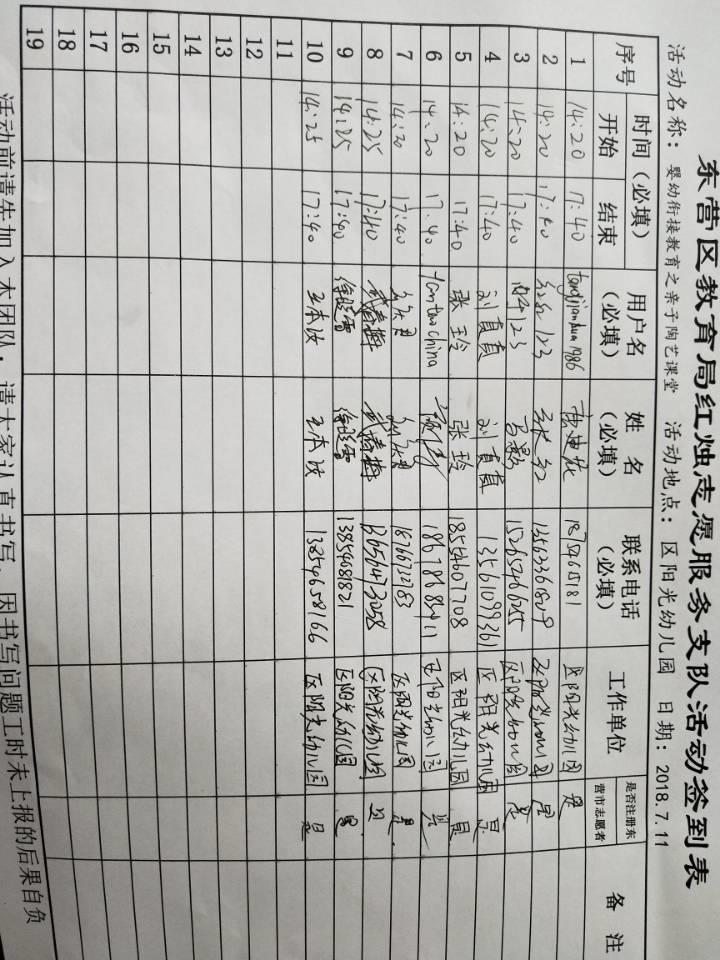 东营区教育局红烛志愿服务支队活动签到表
活动名称：婴幼衔接教育之亲子陶艺课堂 活动地点：区阳光幼儿园 日期：2018.7.11
序号 时间（必填） 用户名（必填） 姓名（必填） 联系电话（必填） 工作单位 是否注册东营市志愿者 备注
开始 结束
1 14:20 17:40 区阳光幼儿园 是
2 14:20 17:40 区阳光幼儿园 是
3 14:20 17:40 区阳光幼儿园 是
4 14:20 17:40 刘真真 刘真真 13561099361 区阳光幼儿园 是
5 14:20 17:40 张玲 张玲 18554607708 区阳光幼儿园 是
6 14:20 17:40 区阳光幼儿园 是
7 14:20 17:40 18766732783 区阳光幼儿园 是
8 14:25 17:40 武春梅 武春梅 13656473058 区阳光幼儿园 是
9 14:25 17:40 徐晓雪 徐晓雪 13854081821 区阳光幼儿园 是
10 14:25 17:40 王本波 王本波 13854658166 区阳光幼儿园 是
11
12
13
14
15
16
17
18
19
活动前请先加入本团队，请大家认真书写，因书写问题工时未上报的后果自负